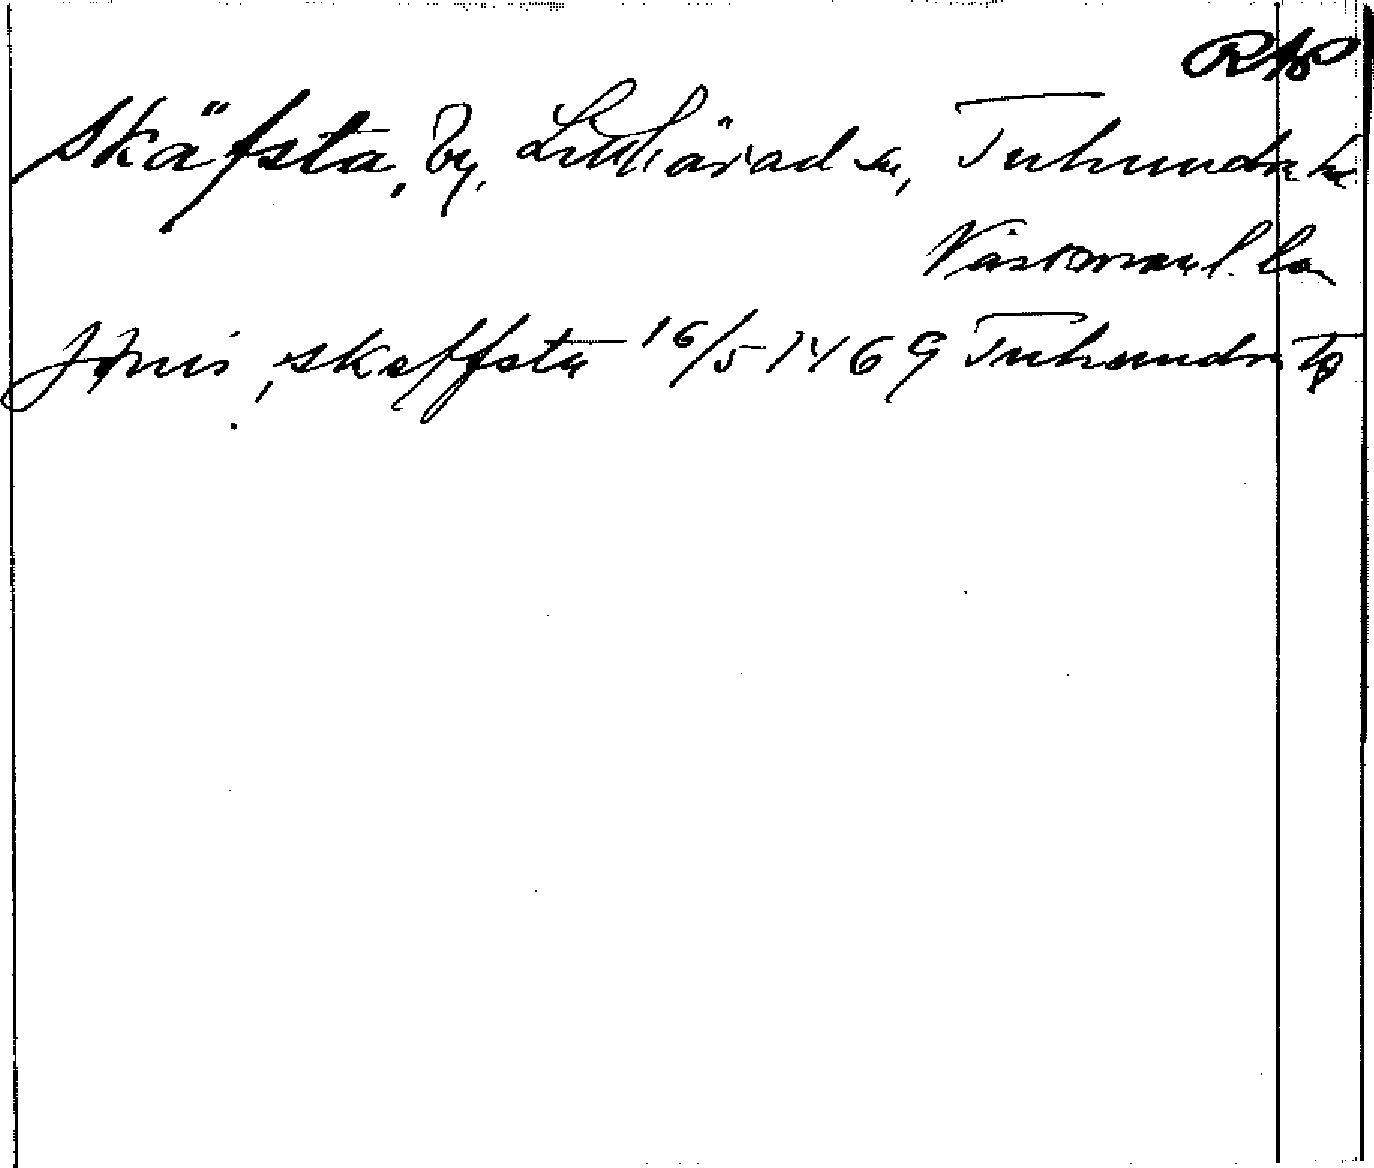 RAP
Skäfsta, by, Lillhärad sn, Tuhundra hd
Västmanl. län
Jönis, skeffsta 16/5 1469 Tuhundra Tp